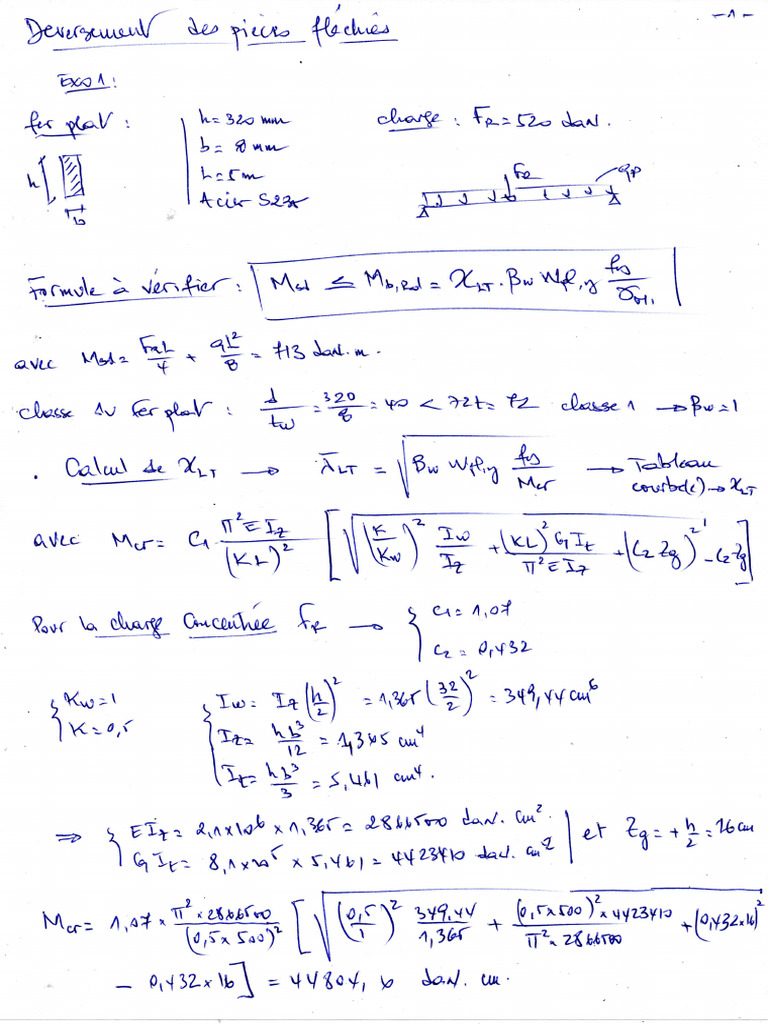 -1-
Deversement des pièces fléchies
Exo1:
fer plat : h = 320 mm
b = 8 mm
L = 5 m
Acier S235
charge : FR = 520 daN.
h
b
FR
qp
Formule à vérifier : Msd ≤ Mb,Rd = χLT . βw Wpl,y fy/γM1
avec Msd = FRL/4 + qL²/8 = 713 daN.m.
classe du fer plat : d/tw = 320/8 = 40 < 72ε = 72 classe 1 → βw = 1
. Calcul de χLT → λ̄LT = √(βw Wpl,y fy/Mcr) → Tableau courbe(c) → χLT
avec Mcr = C1 π²EIz/(KL)² [√((K/Kw)² Iw/Iz + (KL)² GIt/π²EIz + (C2 Zg)²) - C2 Zg]
Pour la charge concentrée FR → { C1 = 1,07
C2 = 0,432
{ Kw = 1
K = 0,5
{ Iw = Iz (h/2)² = 1,365 (32/2)² = 349,44 cm⁶
Iz = hb³/12 = 1,365 cm⁴
It = hb³/3 = 5,461 cm⁴.
⇒ { EIz = 2,1×10⁶ × 1,365 = 2866500 daN.cm²
GIt = 8,1×10⁵ × 5,461 = 4423410 daN.cm² | et Zg = + h/2 = 16 cm
Mcr = 1,07 × π² × 2866500/(0,5×500)² [√((0,5/1)² 349,44/1,365 + (0,5×500)² × 4423410/π² × 2866500 + (0,432×16)²
- 0,432×16] = 44804,6 daN.cm.